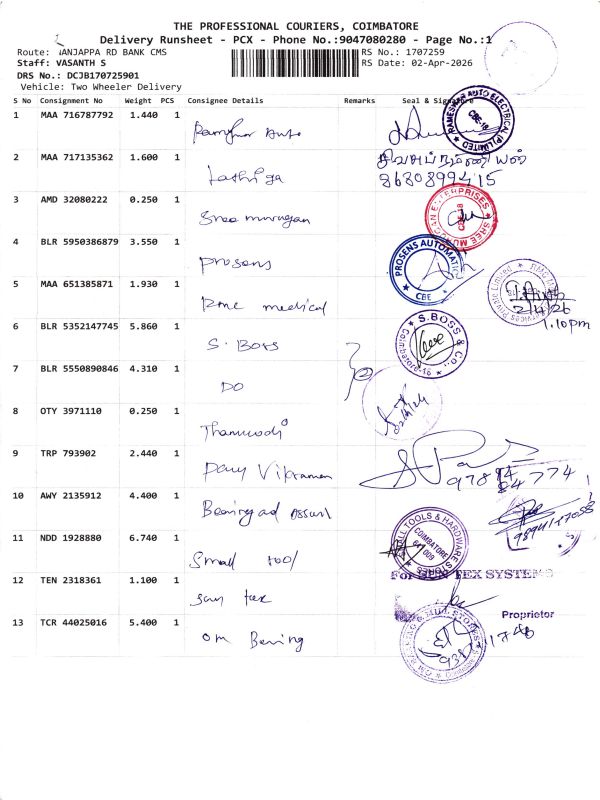 THE PROFESSIONAL COURIERS, COIMBATORE
Delivery Runsheet - PCX - Phone No.:9047080280 - Page No.:1
Route: ANJAPPA RD BANK CMS
RS No.: 1707259
Staff: VASANTH S
RS Date: 02-Apr-2026
DRS No.: DCJB170725901
Vehicle: Two Wheeler Delivery
S No Consignment No Weight PCS Consignee Details Remarks Seal & Signature
1 MAA 716787792 1.440 1 Auto
RAMESHWAR AUTO ELECTRICAL (P) LIMITED CBE-18
2 MAA 717135362 1.600 1
8680899415
3 AMD 32080222 0.250 1 Sree murugan
SREE MURUGAN ENTERPRISES
4 BLR 5950386879 3.550 1 Prosens
PROSENS AUTOMATIC CBE
5 MAA 651385871 1.930 1 Rmc medical
Services Private Limited
2/4/26
1.10pm
6 BLR 5352147745 5.860 1 S. Boss
S. BOSS & Co. Coimbatore
7 BLR 5550890846 4.310 1 DO
8 OTY 3971110 0.250 1
9 TRP 793902 2.440 1 Vikraman
10 AWY 2135912 4.400 1 Bearing
11 NDD 1928880 6.740 1 Small tool
TOOLS & HARDWARE COIMBATORE
12 TEN 2318361 1.100 1 Sun tex
For SUN TEX SYSTEMS
Proprietor
13 TCR 44025016 5.400 1 Om Bearing